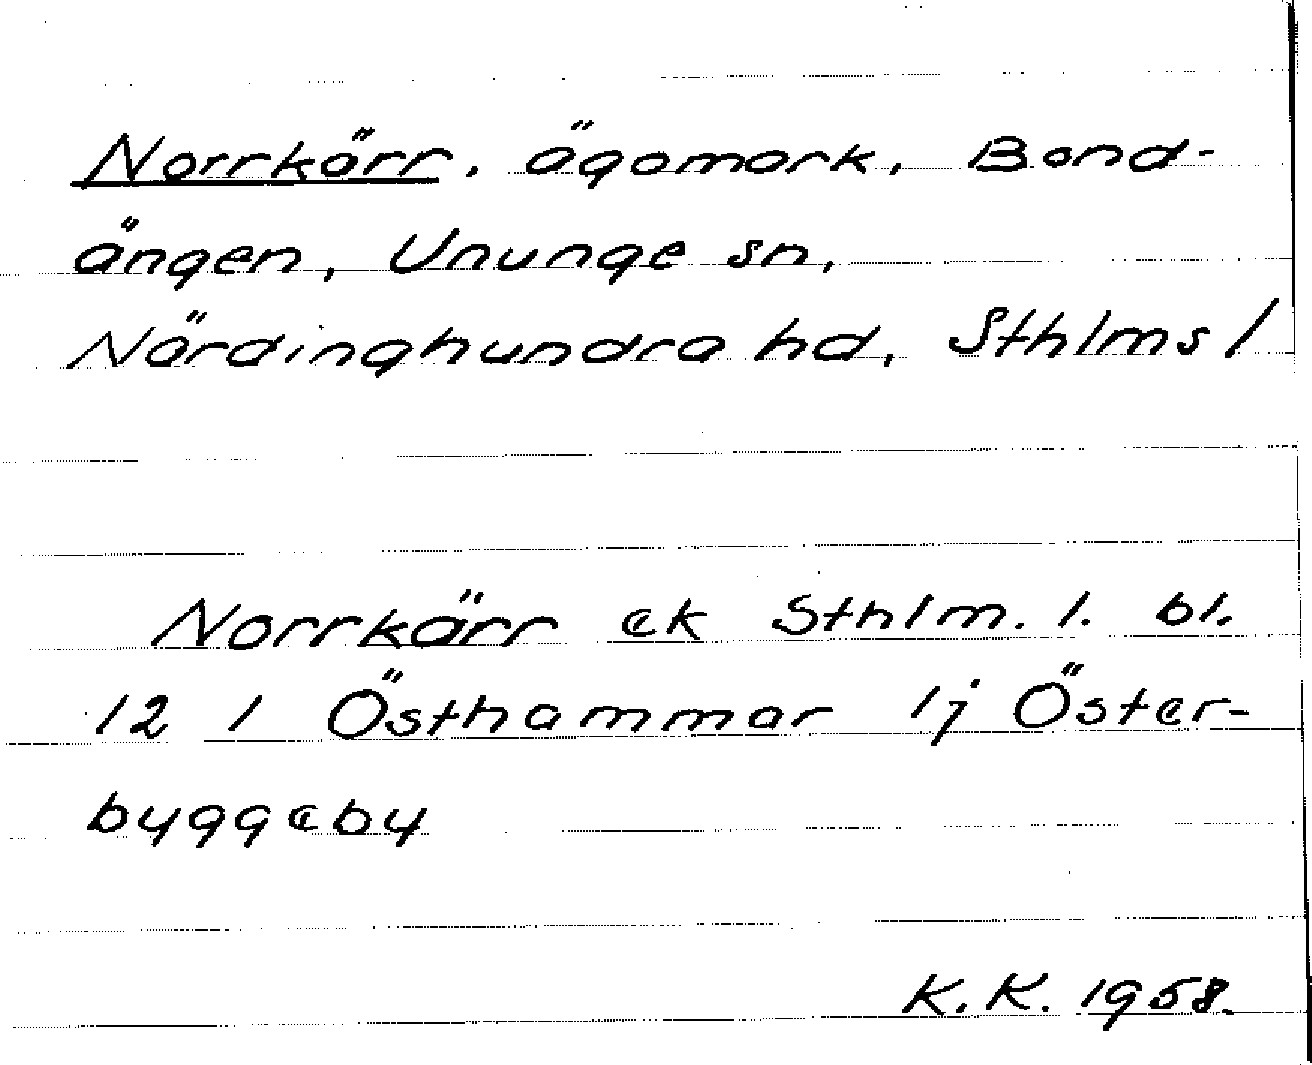 Norrkärr, ägomark, Bond-
ängen, Ununge sn,
Närdinghundra hd, Sthlms l
Norrkärr ek Sthlm. l. bl.
12 l Östhammar lj Öster-
byggeby
K.K. 1958.